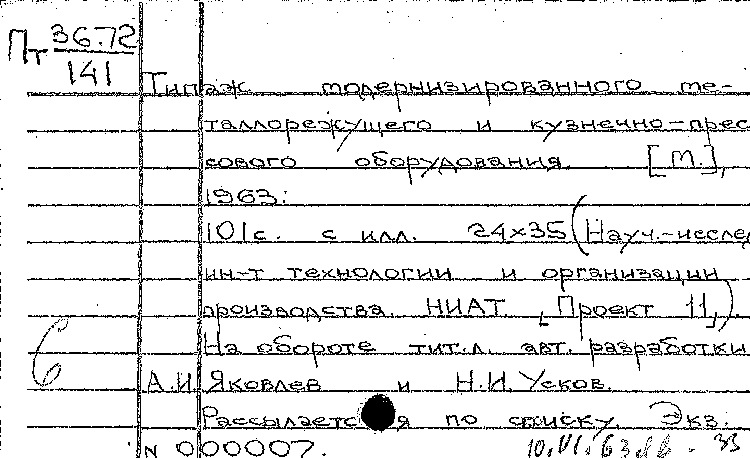 Пт 36.72
141
Типаж модернизированного ме-
таллорежущего и кузнечно-прес
сового оборудования. [М.],
1963.
101с. с илл. 24×35 (Науч.-исслед
ин-т технологии и организации
производства. НИАТ. „Проект 11„).
На обороте тит.л. авт. разработки
А.И. Яковлев и Н.И. Усков.
6
Рассылается по списку. Экз.
N 000007.
10.VI.63
33